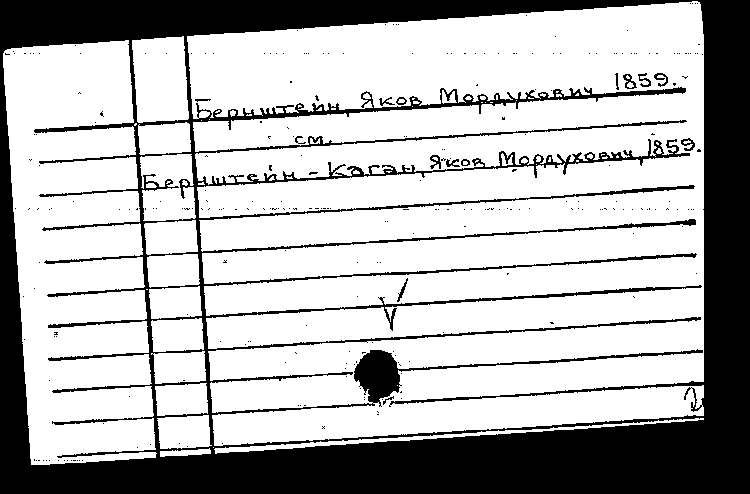 Бернштейн, Яков Мордухович, 1859.
см.
Бернштейн - Каган, Яков Мордухович, 1859.